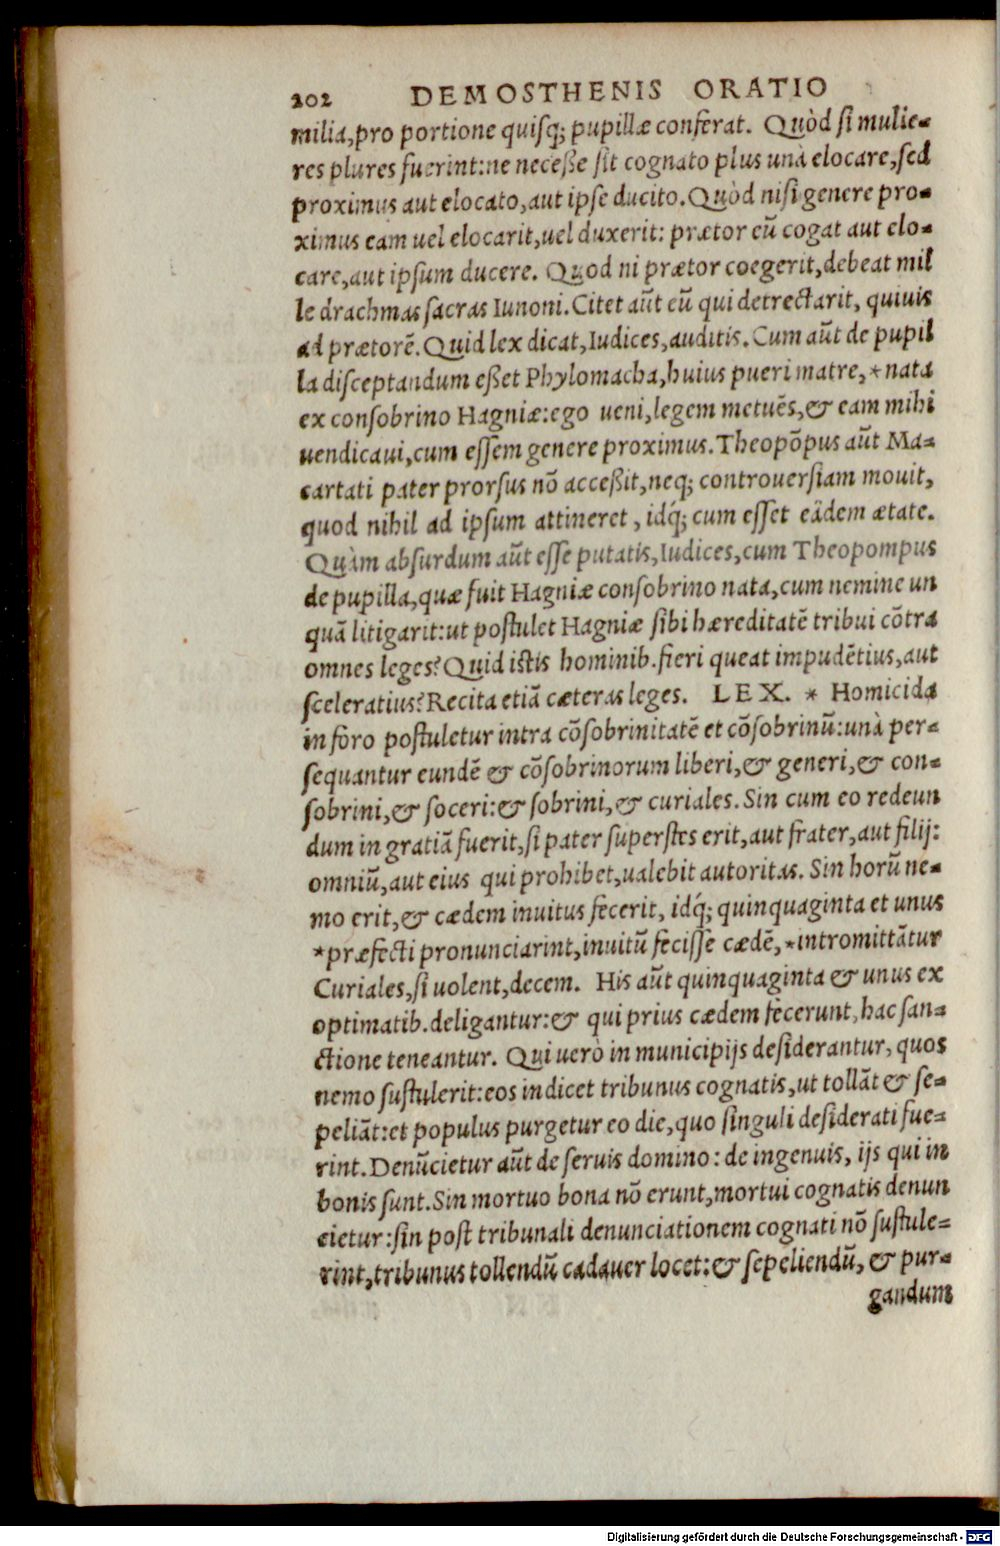 202 DEMOSTHENIS ORATIO
milia, pro portione quisq; pupillæ conferat. Quòd si mulie-
res plures fuerint: ne neceße sit cognato plus unà elocare, sed
proximus aut elocato, aut ipse ducito. Quòd nisi genere pro-
ximus eam uel elocarit, uel duxerit: prætor eū cogat aut elo-
care, aut ipsum ducere. Quod ni prætor coegerit, debeat mil
le drachmas sacras Iunoni. Citet aūt eū qui detrectarit, quiuis
ad prætorē. Quid lex dicat, Iudices, auditis. Cum aūt de pupil
la disceptandum eßet Phylomacha, huius pueri matre, *nata
ex consobrino Hagniæ: ego ueni, legem metuēs, & eam mihi
uendicaui, cum essem genere proximus. Theopōpus aūt Ma-
cartati pater prorsus nō acceßit, neq; controuersiam mouit,
quod nihil ad ipsum attineret, idq́; cum esset eâdem ætate.
Quàm absurdum aūt esse putatis, Iudices, cum Theopompus
de pupilla, quæ fuit Hagniæ consobrino nata, cum nemine un
quā litigarit: ut postulet Hagniæ sibi hæreditatē tribui cōtra
omnes leges? Quid istis hominib. fieri queat impudētius, aut
sceleratius? Recita etiā cæteras leges. LEX. * Homicida
in foro postuletur intra cōsobrinitatē et cōsobrinū: unà per-
sequantur eundē & cōsobrinorum liberi, & generi, & con-
sobrini, & soceri: & sobrini, & curiales. Sin cum eo redeun
dum in gratiā fuerit, si pater superstes erit, aut frater, aut filij:
omniū, aut eius qui prohibet, ualebit autoritas. Sin horū ne-
mo erit, & cædem inuitus fecerit, idq́; quinquaginta et unus
*præfecti pronunciarint, inuitū fecisse cædē, *intromittātur
Curiales, si uolent, decem. His aūt quinquaginta & unus ex
optimatib. deligantur: & qui prius cædem fecerunt, hac san-
ctione teneantur. Qui uerò in municipijs desiderantur, quos
nemo sustulerit: eos indicet tribunus cognatis, ut tollāt & se-
peliāt: et populus purgetur eo die, quo singuli desiderati fue-
rint. Denūcietur aūt de seruis domino: de ingenuis, ijs qui in
bonis sunt. Sin mortuo bona nō erunt, mortui cognatis denun
cietur: sin post tribunali denunciationem cognati nō sustule-
rint, tribunus tollendū cadauer locet: & sepeliendū, & pur-
gandum
Digitalisierung gefördert durch die Deutsche Forschungsgemeinschaft - DFG